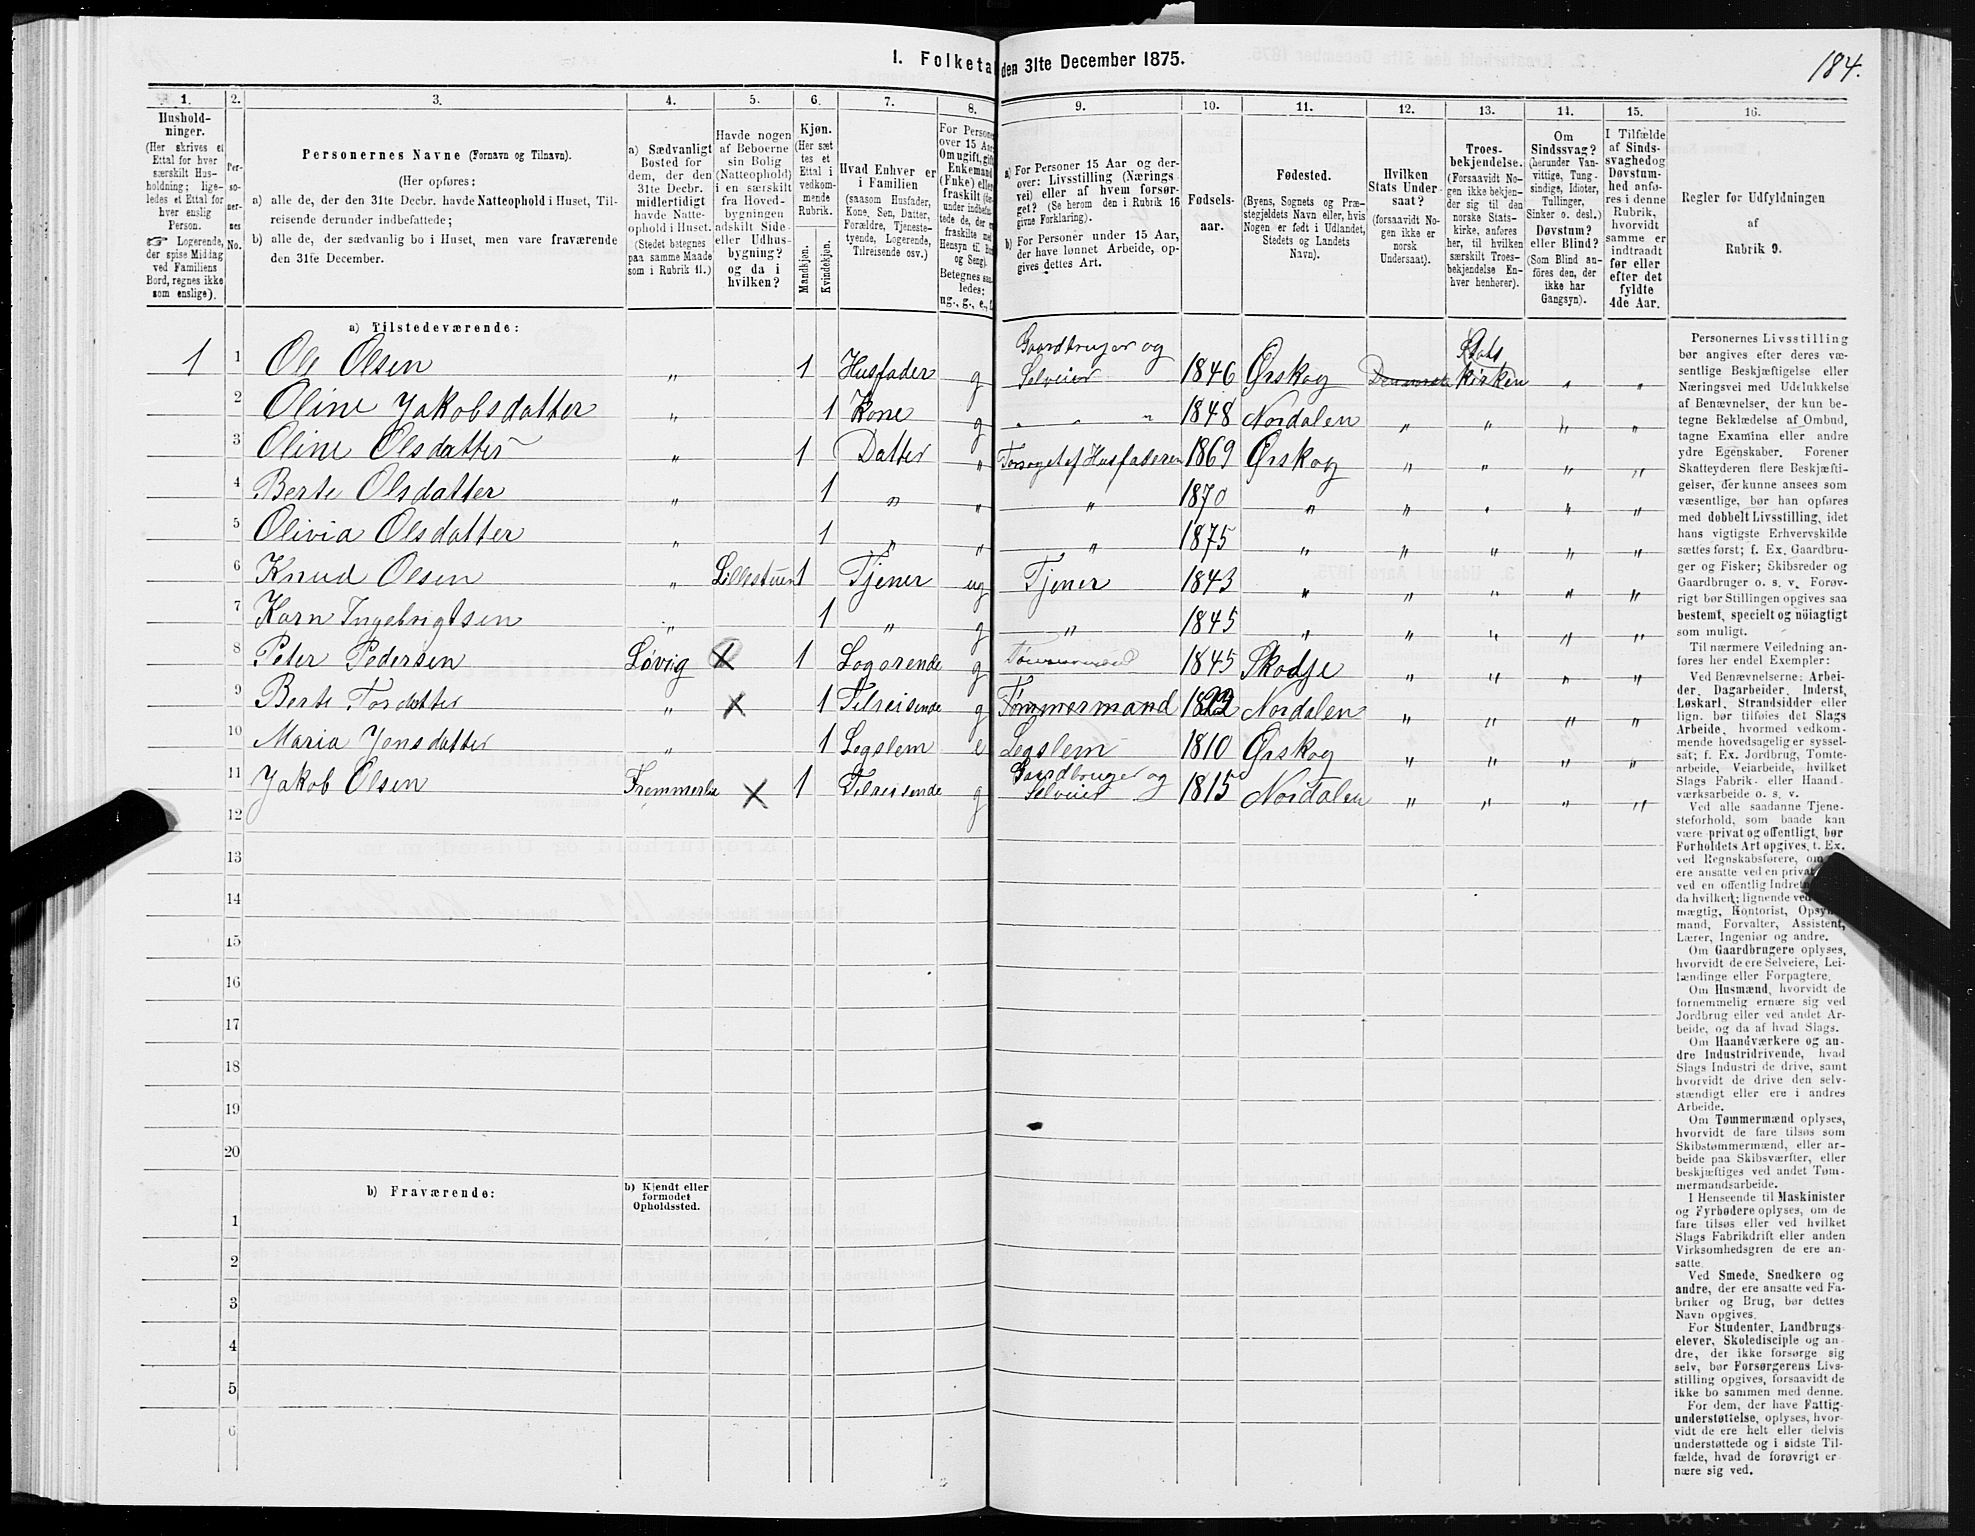 I. Folketæ den 31te December 1875.
184.
1. 2. 3. 4. 5. 6. 7. 8. 9. 10. 11. 12. 13. 14. 15. 16.
Hushold-
ninger.
(Her skrives et
Ettal for hver
særskilt Hus-
holdning; lige-
ledes et Ettal for
hver enslig
Person.
☞ Logerende,
der spise Middag
ved Familiens
Bord, regnes ikke
som enslige).
Per-
so-
ner-
nes
No.
Personernes Navne (Fornavn og Tilnavn).
(Her opføres:
a) alle de, der den 31te Decbr. havde Natteophold i Huset, Til-
reisende derunder indbefattede;
b) alle de, der sædvanlig bo i Huset, men vare fraværende
den 31te December.
a) Sædvanligt
Bosted for
dem, der den
31te Decbr.
midlertidigt
havde Natte-
ophold i Huset.
(Stedet betegnes
paa samme Maade
som i Rubrik 11.)
Havde nogen
af Beboerne
sin Bolig
(Natteophold)
i en særskilt
fra Hoved-
bygningen
adskilt Side-
eller Udhus-
bygning?
og da i
hvilken?
Kjøn.
(Her sæt
tes et
Ettal i
vedkom-
mende
Rubrik.
Mandkjøn.
Kvindekjøn.
Hvad Enhver er
i Familien
(saasom Husfader,
Kone, Søn, Datter,
Forældre, Tjeneste-
tyende, Logerende,
Tilreisende osv.)
For Persone
over 15 Aar
Om ugift, gift
Enkemand
(Enke) elle
fraskilt
Betegnes saa
ledes:
ug., g., e.,
a) For Personer 15 Aar og der-
over: Livsstilling (Nærings
vei) eller af hvem forsør-
get? (Se herom den i Rubrik 16
givne Forklaring).
b) For Personer under 15 Aar,
der have lønnet Arbeide, op-
gives dettes Art.
Fødsels-
aar.
Fødested.
(Byens, Sognets og Præ-
stegjeldets Navn eller, hvis
Nogen er født i Udlandet,
Stedets og Landets
Navn).
Hvilken
Stats Under-
saat?
(forsaavidt No-
gen ikke er
norsk
Undersaat).
Troes-
bekjendelse.
(Forsaavidt No-
gen ikke bekjen-
der sig til den
norske Stats-
kirke, anføres
her, til hvilken
særskilt Troes-
bekjendelse En-
hver henhører).
Om
Sindssvag?
(herunder Van-
vittige, Tung-
sindige, Idioter,
Tullinger,
Sinker o. desl.)
Døvstum?
eller Blind?
(Som Blind an-
føres den, der
ikke har
Gangsyn).
I Tilfælde
af Sinds-
svaghed og
Døvstum-
hed anfø-
res i denne
Rubrik,
hvorvidt
samme er
indtraadt
før eller
efter det
fyldte
4de Aar.
Regler for Udfyldningen
af
Rubrik 9.
a) Tilstedeværende:
1 1 Ole Olsen " 1 Husfader g Gaardbruger og Selveier 1846 Ørskog Statskirken " "
2 Oline Jakobsdatter " 1 Kone g " " 1848 Nordalen " " " "
3 Oline Olsdatter " 1 Datter " Forsøget af Husfaderen 1869 Ørskog " " " "
4 Berte Olsdatter " 1 " " " 1870 " " " " "
5 Olivia Olsdatter " 1 " " " 1875 " " " " "
6 Knud Olsen " Lillestuen 1 Tjener ug Tjener 1843 " " " " "
7 Karn Ingebrigtsen " 1 " g " 1845 " " " " "
8 Peter Pedersen Løvig X 1 Logerende g 1845 Skodje " " " "
9 Berte Tordatter " X 1 Tilreisende g Tømmermand Nordalen " " " "
10 Maria Jonsdatter " 1 Legslem e Legslem 1810 Ørskog " " " "
11 Jakob Olsen X 1 Tilreisende g Gaardbruger og Selveier 1815 Nordalen " " " "
12
13
14
15
16
17
18
19
20
b) Fraværende:
b) Kjendt eller
formodet
Opholdssted.
1
2
3
4
5
6
Personernes Livsstilling
bør angives efter deres væ-
sentlige Beskjæftigelse eller
Næringsvei med Udelukkelse
af Benævnelser, der kun be-
tegne Beklædelse af Ombud,
tagne Examina eller andre
ydre Egenskaber. Forener
Skatteyderen flere Beskjæfti-
gelser, der kunne ansees som
væsentlige, bør han opføres
med dobbelt Livsstilling, idet
hans vigtigste Erhvervskilde
sættes først; f. Ex. Gaardbru-
ger og Fisker; Skibsreder og
Gaardbruger o. s. v. Forøv-
rigt bør Stillingen opgives saa
bestemt, specielt og nøiagtigt
som muligt.
Til nærmere Veiledning an-
føres her endel Exempler:
Ved Benævnelserne: Arbei-
der, Dagarbeider, Inderst,
Løskarl, Strandsidder eller
lign. bør tilføies det Slags
Arbeide, hvormed vedkom-
mende hovedsagelig er syssel-
sat; f. Ex. Jordbrug, Tomte-
arbeide, Veiarbeide, hvilket
Slags Fabrik- eller Haand-
værksarbeide o. s. v.
Ved alle saadanne Tjene-
steforhold, som baade kan
være privat og offentligt, bør
Forholdets Art opgives, t. Ex.
ved Regnskabsførere, om
ere ansatte ved en privat
ved en offentlig Indret
da hvilken; lignende ved
mægtig, Kontorist, Opsyns
mand, Forvalter, Assistent,
Lærer, Ingeniør og andre.
Om Gaardbrugere oplyses,
hvorvidt de ere Selveiere, Lei-
lændinge eller Forpagtere.
Om Husmænd, hvorvidt de
fornemmelig ernære sig ved
Jordbrug eller ved andet Ar-
beide, og da af hvad Slags.
Om Haandværkere og an-
dre Industridrivende, hvad
Slags Industri de drive, samt
hvorvidt de drive den selv-
stændigt eller ere i andres
Arbeide.
Om Tømmermænd oplyses,
hvorvidt de fare tilsøs som
Skibstømmermænd, eller ar-
beide paa Skibsværfter, eller
beskjæftiges ved andet Tøm-
mermandsarbeide.
I Henseende til Maskinister
og Fyrbødere oplyses, om de
fare tilsøs eller ved hvilket
Slags Fabrikdrift eller anden
Virksomhedsgren de ere an-
satte.
Ved Smede, Snedkere og
andre, der ere ansatte ved Fa-
briker og Brug, bør dettes
Navn opgives.
For Studenter, Landbrugs-
elever, Skoledisciple og an-
dre, der ikke forsørge sig
selv, bør Forsørgerens Livs-
stilling opgives, forsaavidt de
ikke bo sammen med denne.
For dem, der have Fattig-
understøttelse, oplyses, hvor-
vidt de ere helt eller delvis
understøttede og i sidste Til-
fælde, hvad de forøvrigt er-
nære sig ved.